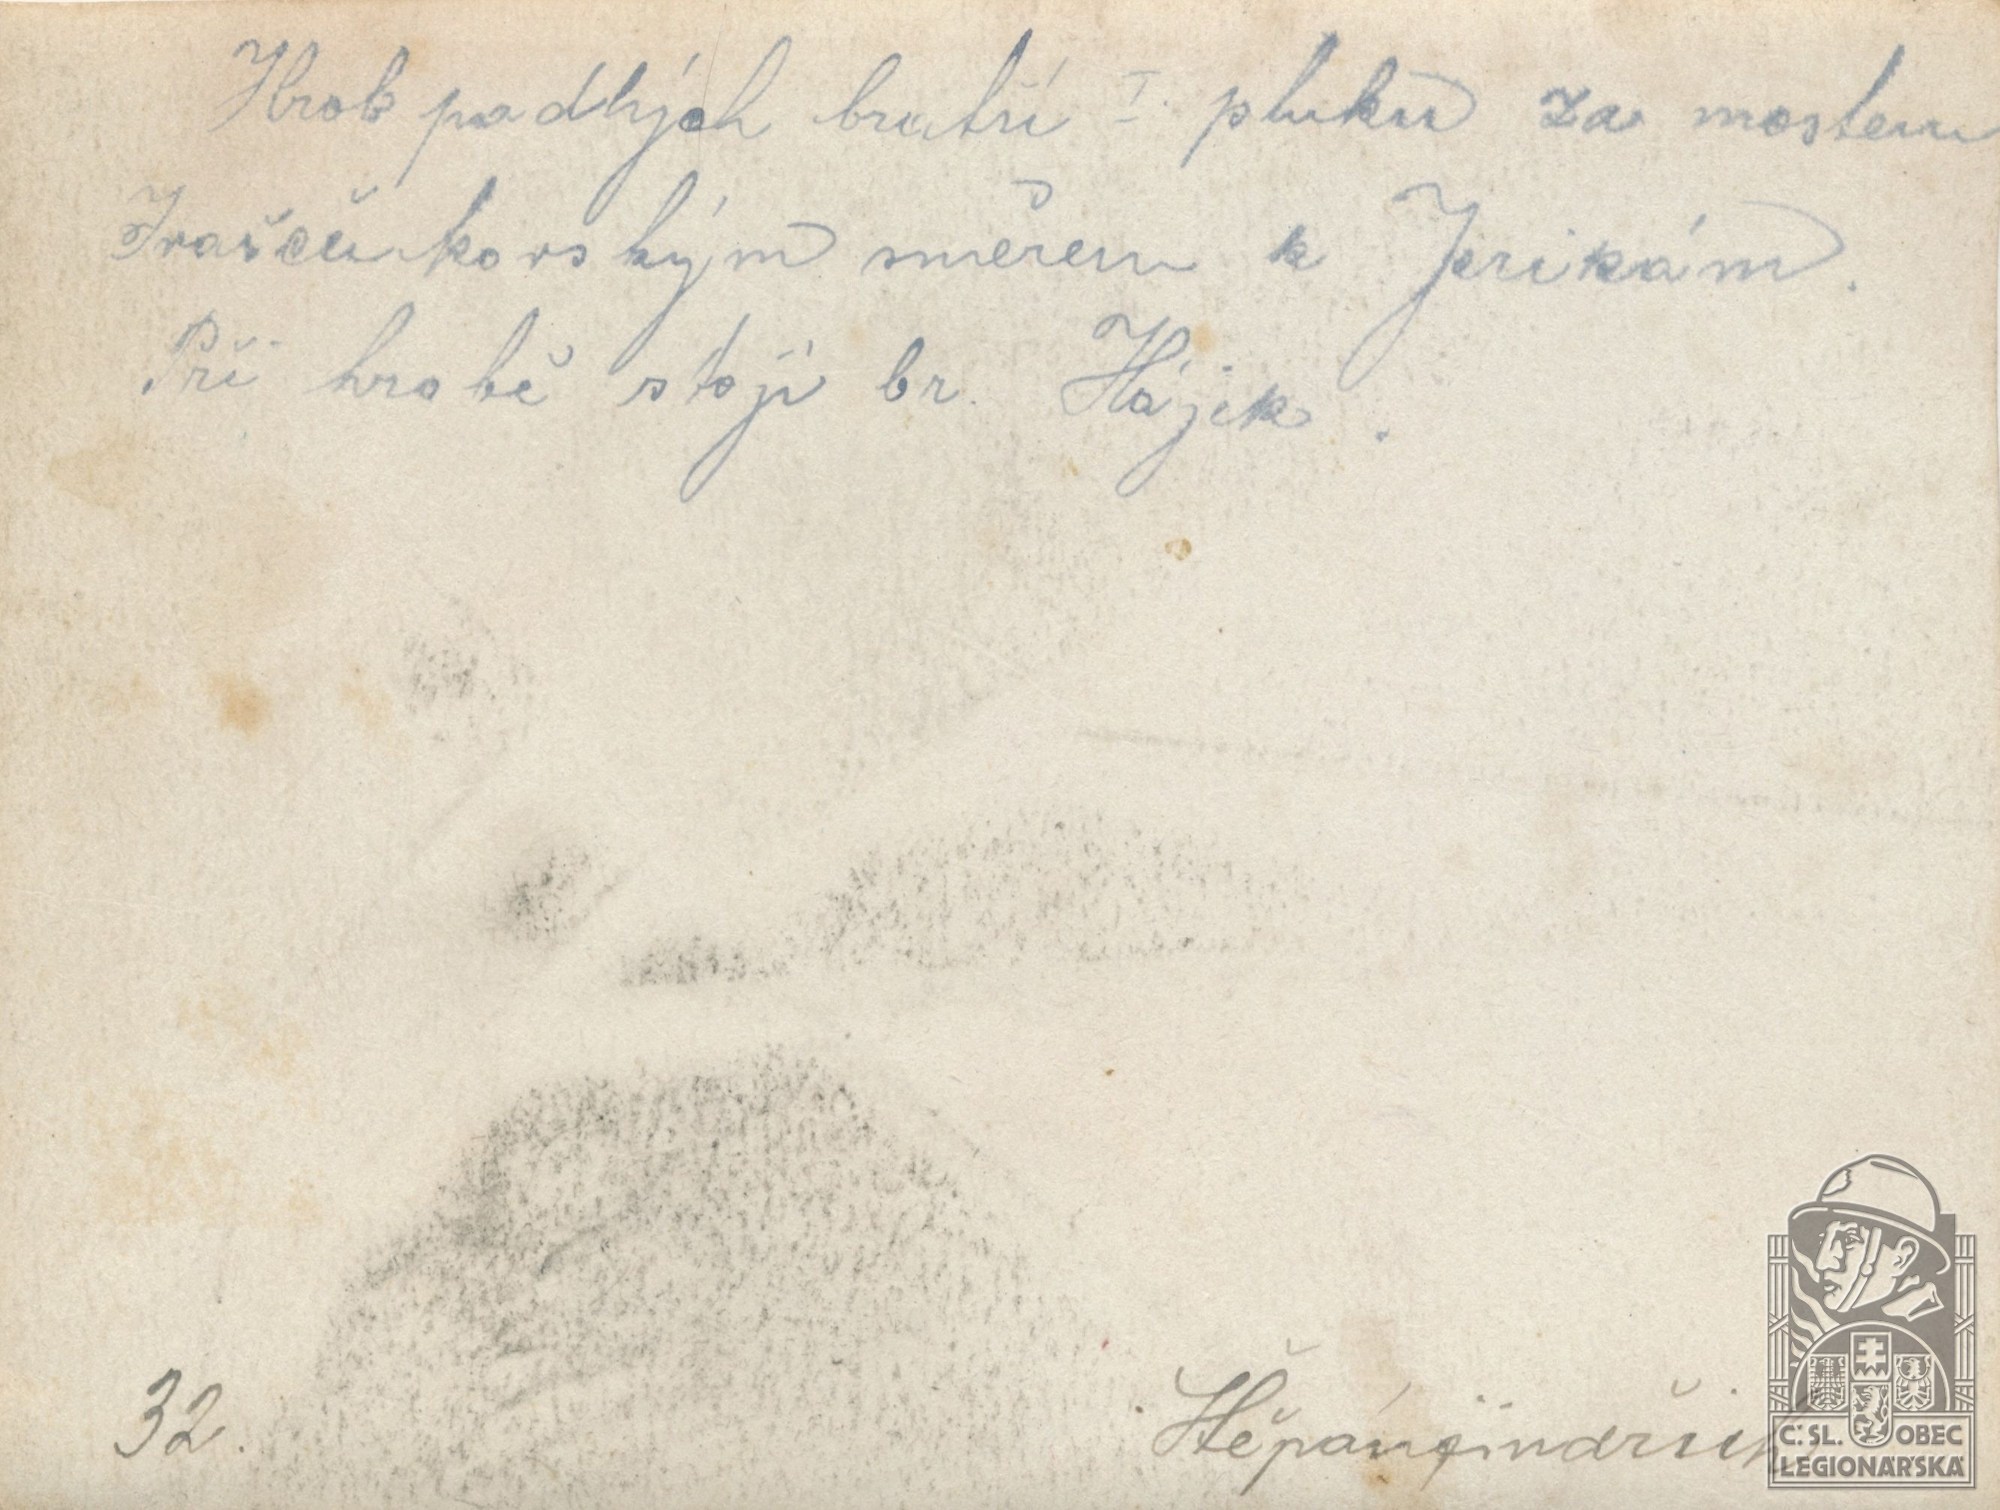 Hrob padlých bratří I. pluku za mostem
Ivaščenkovským směrem k Jerikám.
Při hrobě stojí br. Hájek.
32.
Štěpán Jindřich
Č. SL. OBEC
LEGIONÁŘSKÁ